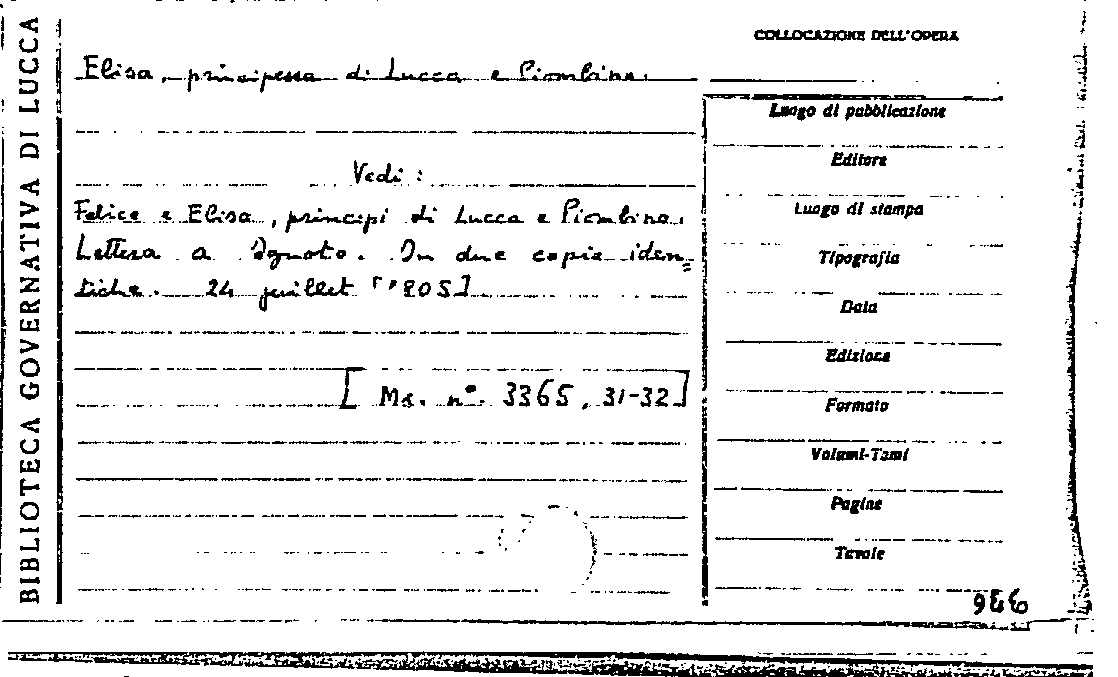 BIBLIOTECA GOVERNATIVA DI LUCCA
Elisa, principessa di Lucca e Piombino.
Vedi:
Felice e Elisa, principi di Lucca e Piombino.
Lettera a Ignoto. In due copie iden=
tiche. 24 juillet ['805]
[Ms. n°. 3365, 31-32]
COLLOCAZIONE DELL'OPERA
Luogo di pubblicazione
Editore
Luogo di stampa
Tipografia
Data
Edizione
Formato
Volumi-Tomi
Pagine
Tavole